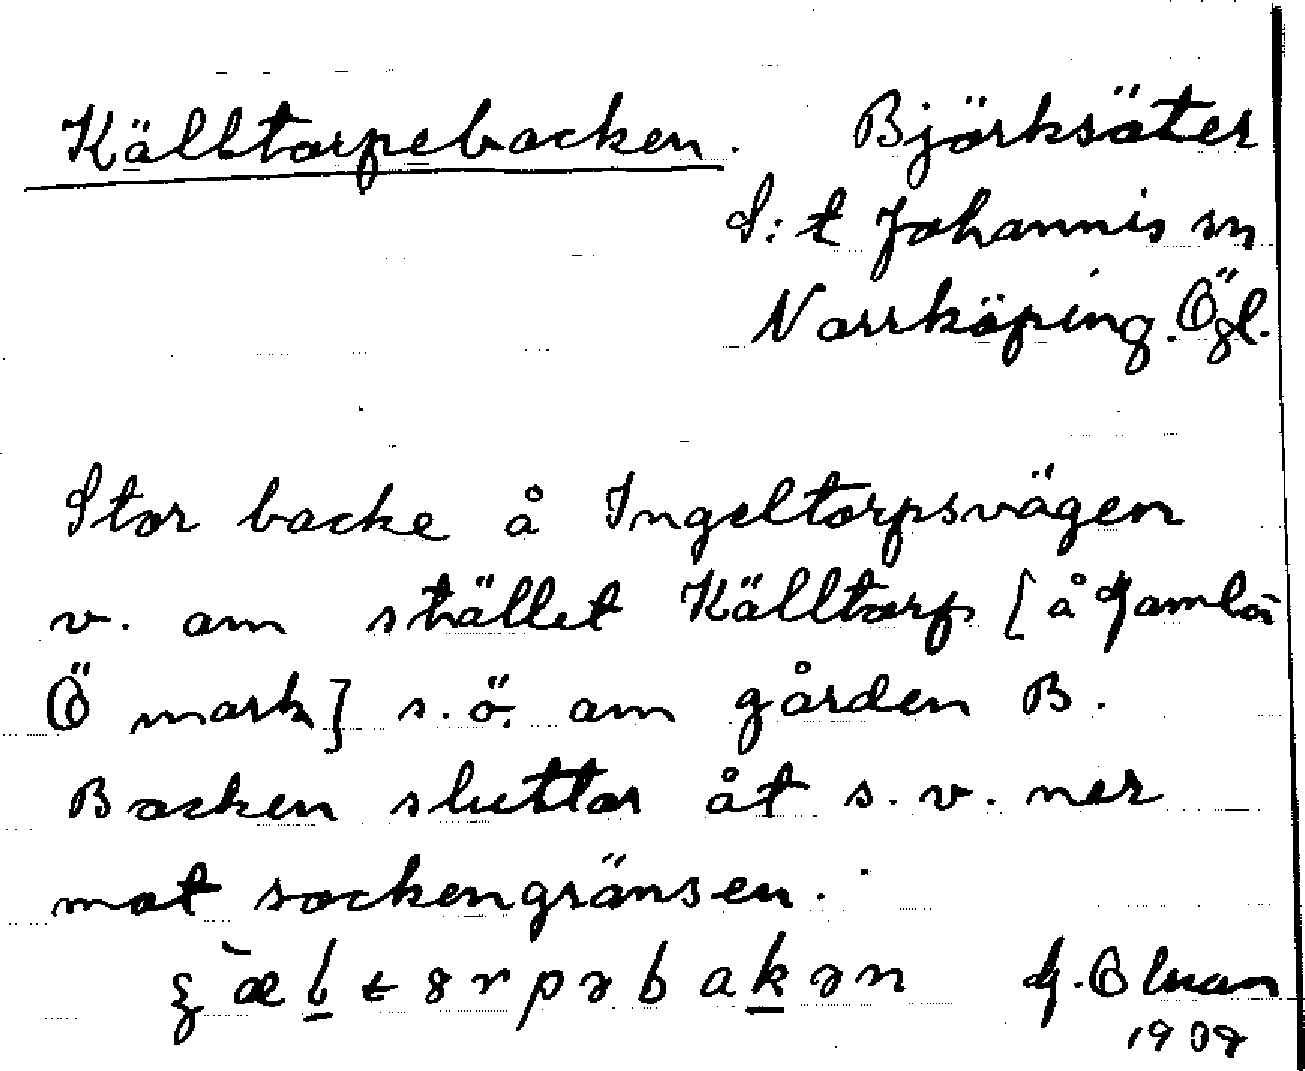 Källtorpebacken. Björksäter
S:t Johannis sn
Norrköping. Ögl.
Stor backe å Ingeltorpsvägen
v. om stället Källtorp [å Gamla
Ö mark] s.ö. om gården B.
Backen sluttar åt s.v. ner
mot sockengränsen.
1909